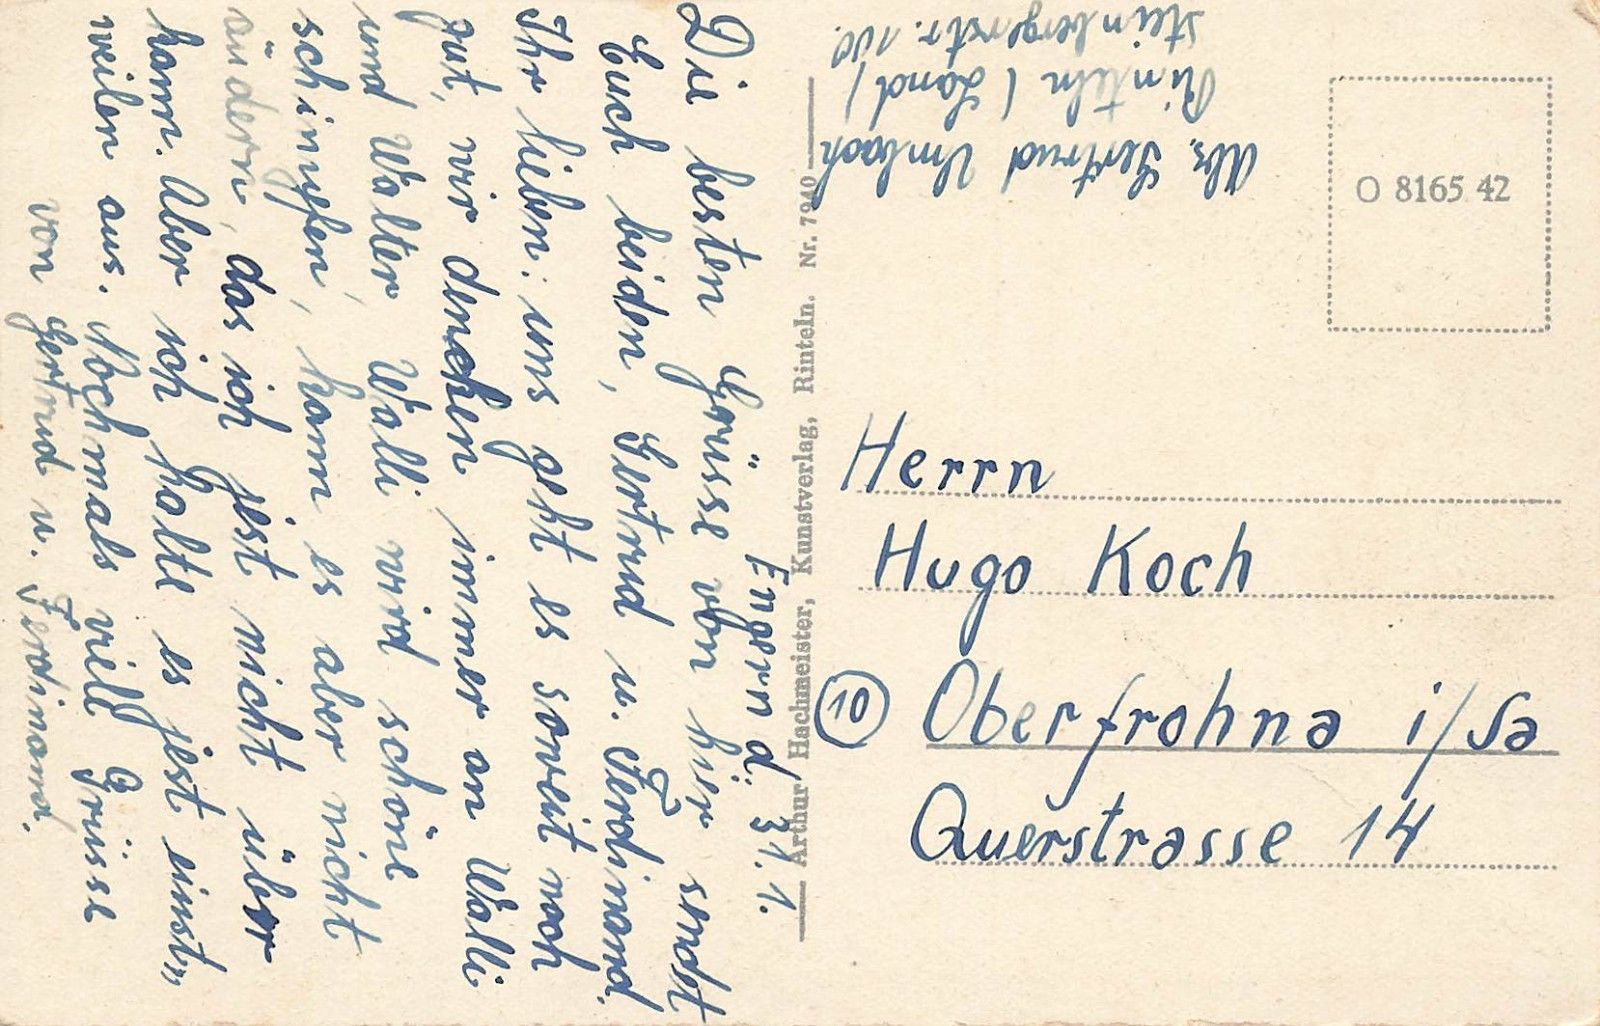 Engern d. 31.1.
Die besten Grüsse von hier sendt
Euch beiden, Gertrud u. Ferdinand.
Ihr lieben: uns geht es soweit noch
gut, wir dencken immer an Walli
und Walter, Walli wird schöne
schimpfen, kann es aber nicht
ändern, das ich jest nicht über
kann. Aber ich halte es jest einst„
weilen aus. Nochmals viele Grüsse
von Gertrud u. Ferdinand.
Arthur Hachmeister, Kunstverlag, Rinteln. Nr. 7940
Abs. Gertrud Umbach
Rinteln (Land)
Steinbergerstr. 100.
O 8165 42
Herrn
Hugo Koch
(10) Oberfrohna i/Sa
Querstrasse 14